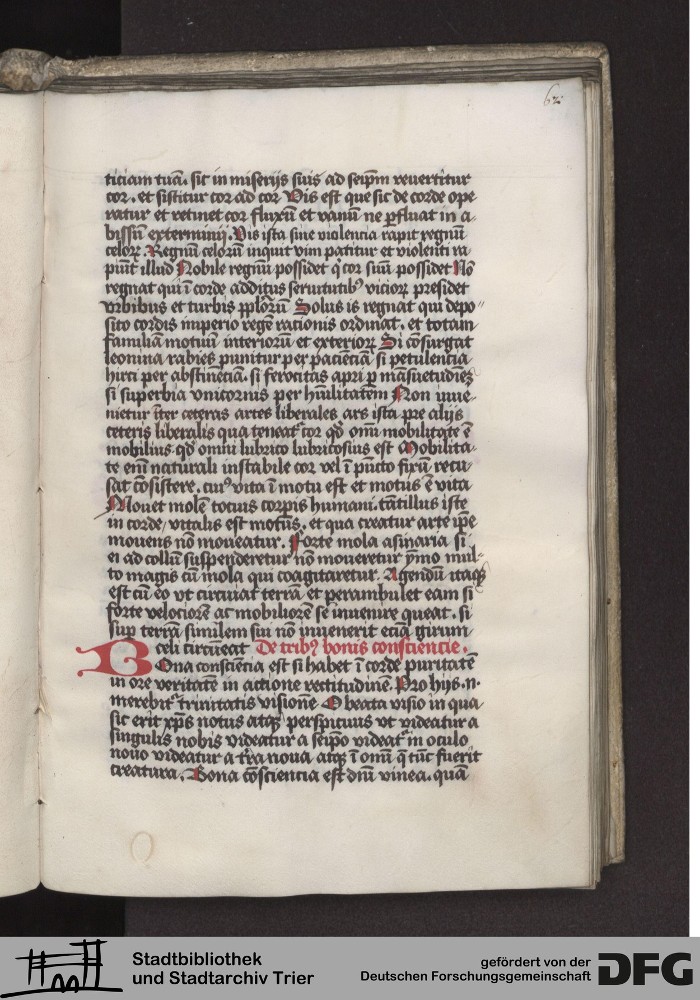 62
ticiam tuā. sic in miserijs suis ad seip̄m reuertitur
cor. et sistitur cor ad cor Vis est que sic de corde ope
ratur et retinet cor fluxū et vanū ne ꝑfluat in a-
bissū exterminij. Vis ista sine violencia rapit regnū
celoꝝ. Regnū celorū inquit vim patitur et violenti ra
piūt illud Nobile regnū possidet q̇ cor suū possidet Nō
regnat qui ī corde additus seruitutibꝰ vicioꝝ presidet
vrbibus et turbis pp̄lorū Solus is regnat qui depo"
sito cordis imperio regē rationis ordinat. et totam
familiā motuū interiorū et exterioꝝ Si cōsurgat
leonina rabies punitur per paciēciā si petulencia
hirci per abstinēciā. si ferocitas apri ꝑ māsuetudinē
si superbia vnicornis per hūilitatem Non inue-
nietur īter ceteras artes liberales ars ista pre alijs
ceteris liberalis qua teneat᷑ cor qd̄ omī mobilitate ē
mobilius. qd̄ omni lubrico lubricosius est Mobilita-
te enī naturali instabile cor vel ī pūcto fixū recu-
sat cōsistere. cuiꝰ vita ī motu est et motus ē vita
Mouet molē tocius corp̄is humani. tātillus iste
in corde, vitalis est motus. et qua creatur arte ip̄e
mouens nō moueatur. Forte mola asinaria si
ei ad collū suspenderetur nō moueretur ymo mul-
to magis cū mola qui coagitaretur. Agendū itaqꝫ
est cū eo vt circuiat terrā et perambulet eam si
forte velociorē ac mobiliorē se inuenire queat. si
sup terrā similem sui nō inuenerit eciā girum
celi circūeat De tribꝰ bonis consciencie.
Bona consciēcia est si habet ī corde puritatē
in ore veritatē in actione rectitudinē. Pro hijs .n.
merebit᷑ trinitatis visionē O beata visio in qua
sic erit xp̄s notus atqꝫ perspicuus vt videatur a
singulis nobis videatur a seipō videat᷑ in oculo
nouo videatur a t̄ra noua atqꝫ ī omī q̄ tūc fuerit
creatura. Bona cōsciencia est dn̄i vinea. quā
Stadtbibliothek
und Stadtarchiv Trier
gefördert von der
Deutschen Forschungsgemeinschaft
DFG